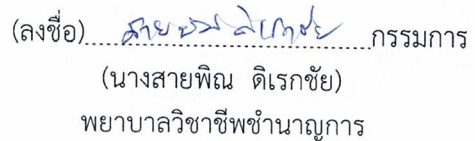 (ลงชื่อ)........................................กรรมการ
(นางสายพิณ ดิเรกชัย)
พยาบาลวิชาชีพชำนาญการ